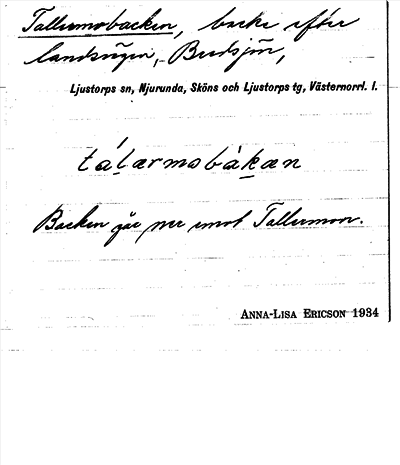 Tallermobacken, backe efter
landsvägen, Bredsjön,
Ljustorps sn, Njurunda, Sköns och Ljustorps tg, Västernorrl. l.
tálarmobàkæn
Backen går ner emot Tallermon.
ANNA-LISA ERICSON 1934